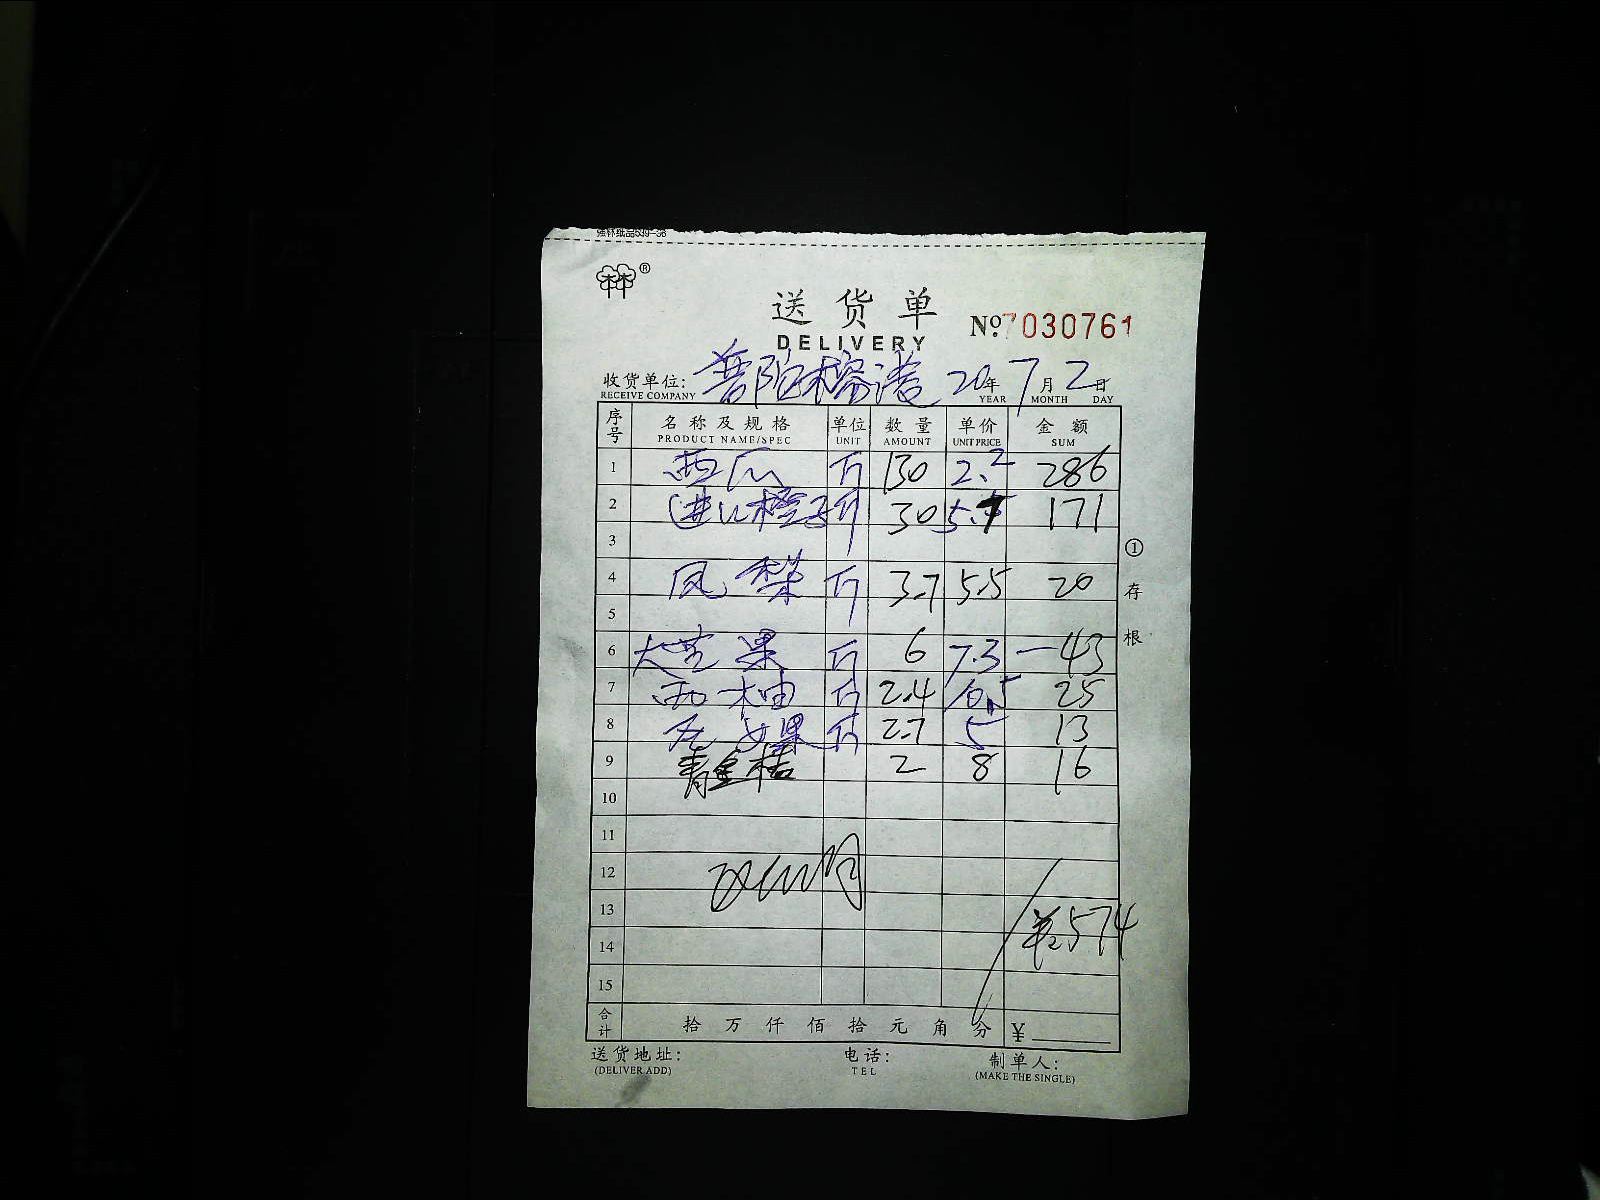 强林纸品539-36
林林®
送货单
DELIVERY
No.7030761
收货单位: 普陀榕港 20年 7月 2日
RECEIVE COMPANY YEAR MONTH DAY
序号 名称及规格 单位 数量 单价 金额
PRODUCT NAME/SPEC UNIT AMOUNT UNIT PRICE SUM
1 西瓜 斤 130 2.2 286
2 进口橙子 斤 30 5.7 171
3
4 凤梨 斤 3.7 5.5 20
5
6 大芒果 斤 6 7.3 43
7 西柚 斤 2.4 10.5 25
8 斤 2.7 5 13
9 青金桔 2 8 16
10
11
12
13 ¥574
14
15
合计 拾万仟佰拾元角分 ¥
送货地址: 电话: 制单人:
(DELIVER ADD) TEL (MAKE THE SINGLE)
①存根